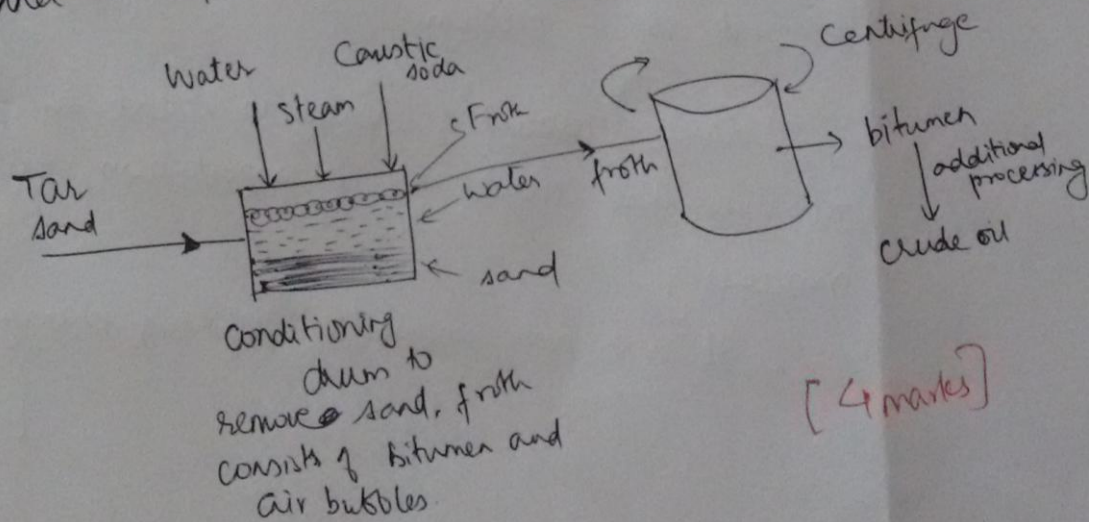 Water
Caustic
soda
steam
Froth
Centrifuge
Tar
sand
water
froth
bitumen
additional
processing
crude oil
sand
Conditioning
drum to
remove sand, froth
consists of Bitumen and
air bubbles.
[4 marks]